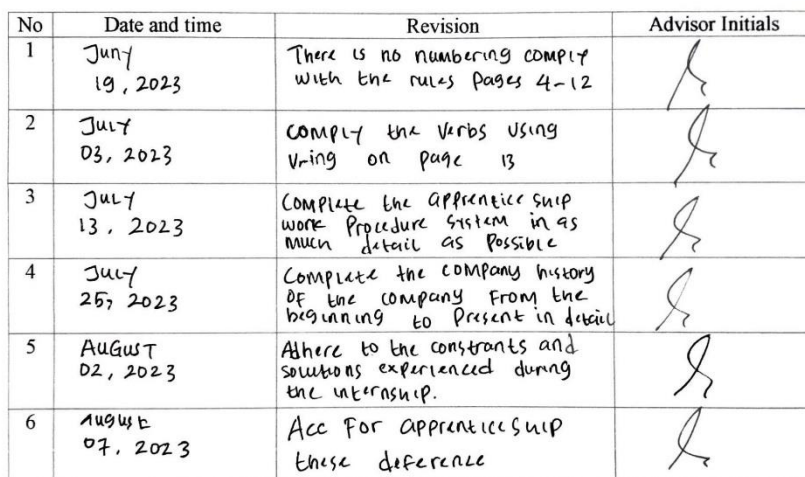 No Date and time Revision Advisor Initials
1 Juny There is no numbering comply
19, 2023 with the rules Pages 4-12
2 July comply the Verbs Using
03, 2023 V-ing on page 13
3 July Complete the apprentice ship
13, 2023 work Procedure System in as
much detail as Possible
4 July Complete the company history
25, 2023 OF the company From the
beginning to Present in detail
5 AUGUST Adhere to the constrants and
02, 2023 solutions experienced during
the internship.
6 August Acc For apprentice ship
07, 2023 these deference